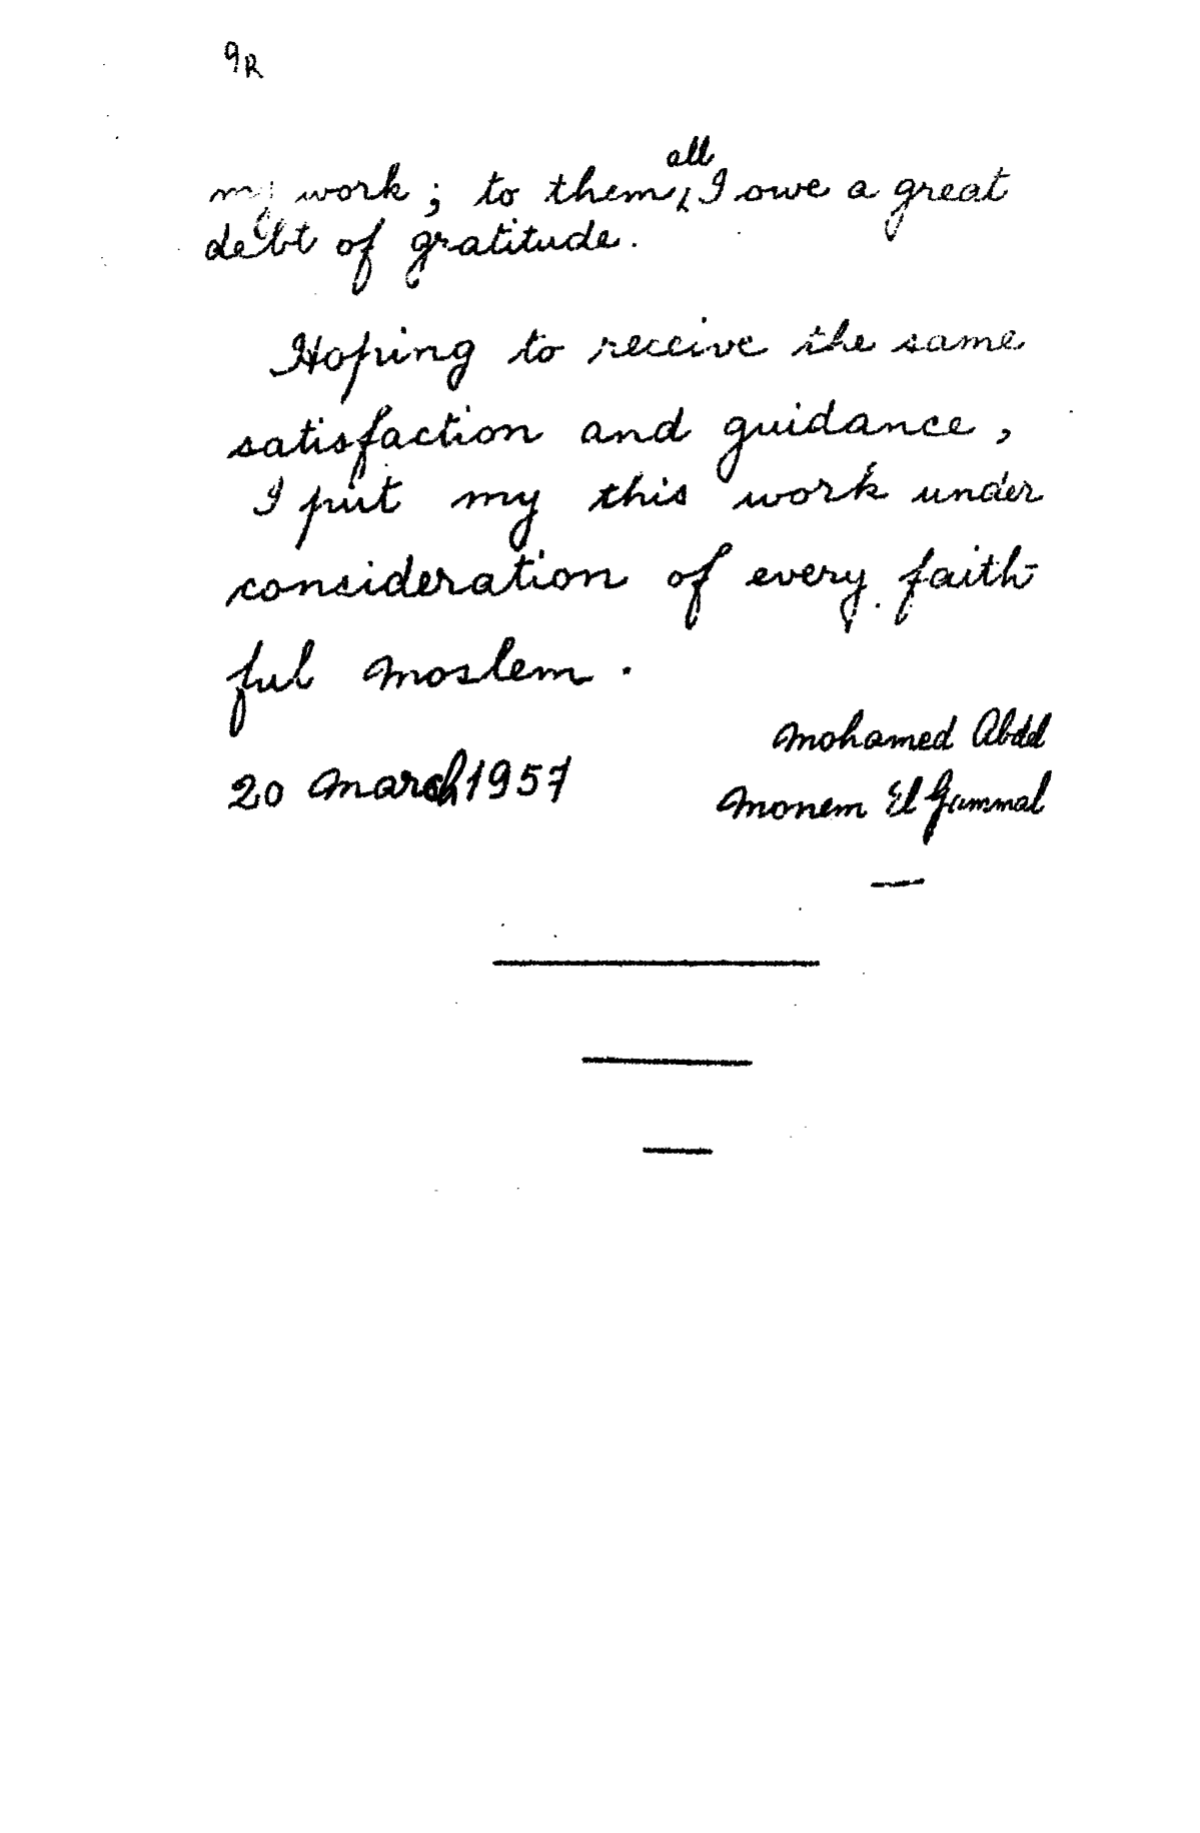 9R
my work; to them all I owe a great
debt of gratitude.
Hoping to receive the same
satisfaction and guidance,
I put my this work under
consideration of every faith-
ful Moslem.
Mohamed Abdel
20 March 1957
Monem El Gammal